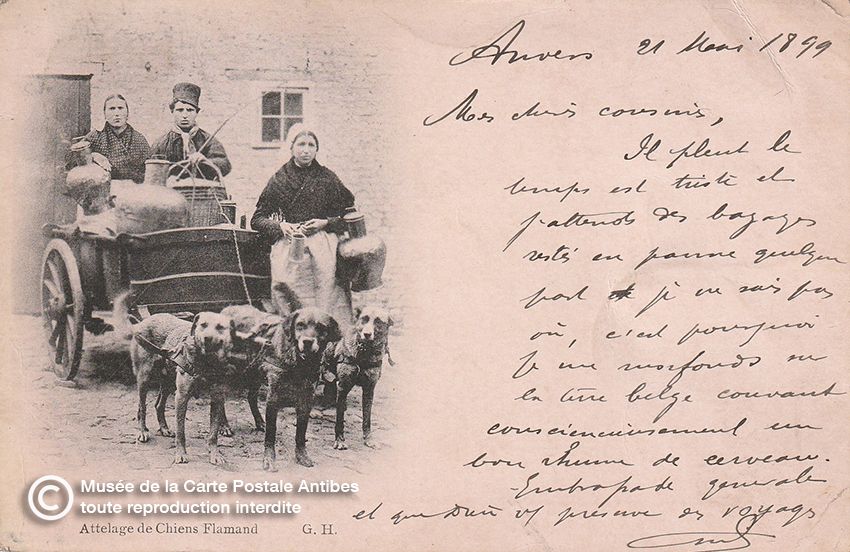 Anvers 21 Mai 1899
Mes chers cousins,
Il pleut le
temps est triste et
j'attends des bagages
restés en panne quelque
part je ne sais pas
où, c'est pourquoi
je me morfonds sur
la terre belge couvant
consciencieusement un
bon rhume de cerveau.
Embrassade generale
et que Dieu vs préserve des voyages
© Musée de la Carte Postale Antibes
toute reproduction interdite
Attelage de Chiens Flamand G. H.